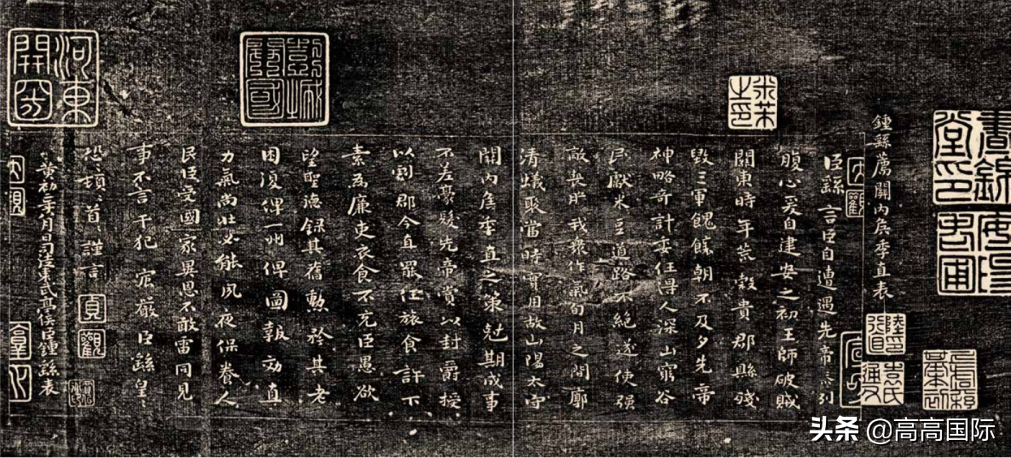 鍾繇薦關內侯季直表
臣繇言臣自遭遇先帝忝列
腹心爰自建安之初王師破賊
關東時年荒穀貴郡縣殘
毀三軍餽饟朝不及夕先帝
神略奇計委任得人深山窮谷
民獻米豆道路不絕遂使強
敵喪膽我衆作氣旬月之間廓
清蟻聚當時實用故山陽太守
關內侯季直之策剋期成事
不差豪髮先帝賞以封爵授
以劇郡今直罷任旅食許下
素為廉吏衣食不充臣愚欲
望聖德錄其舊勳矜其老
困復俾一州俾圖報効直
力氣尚壯必能夙夜保養人
民臣受國家異恩不敢雷同見
事不言干犯宸嚴臣繇皇〻
恐〻頓〻首〻謹言
黃初二年八月日司徒東武亭侯臣鍾繇表
米芾之印
貞觀
头条 @高高国际